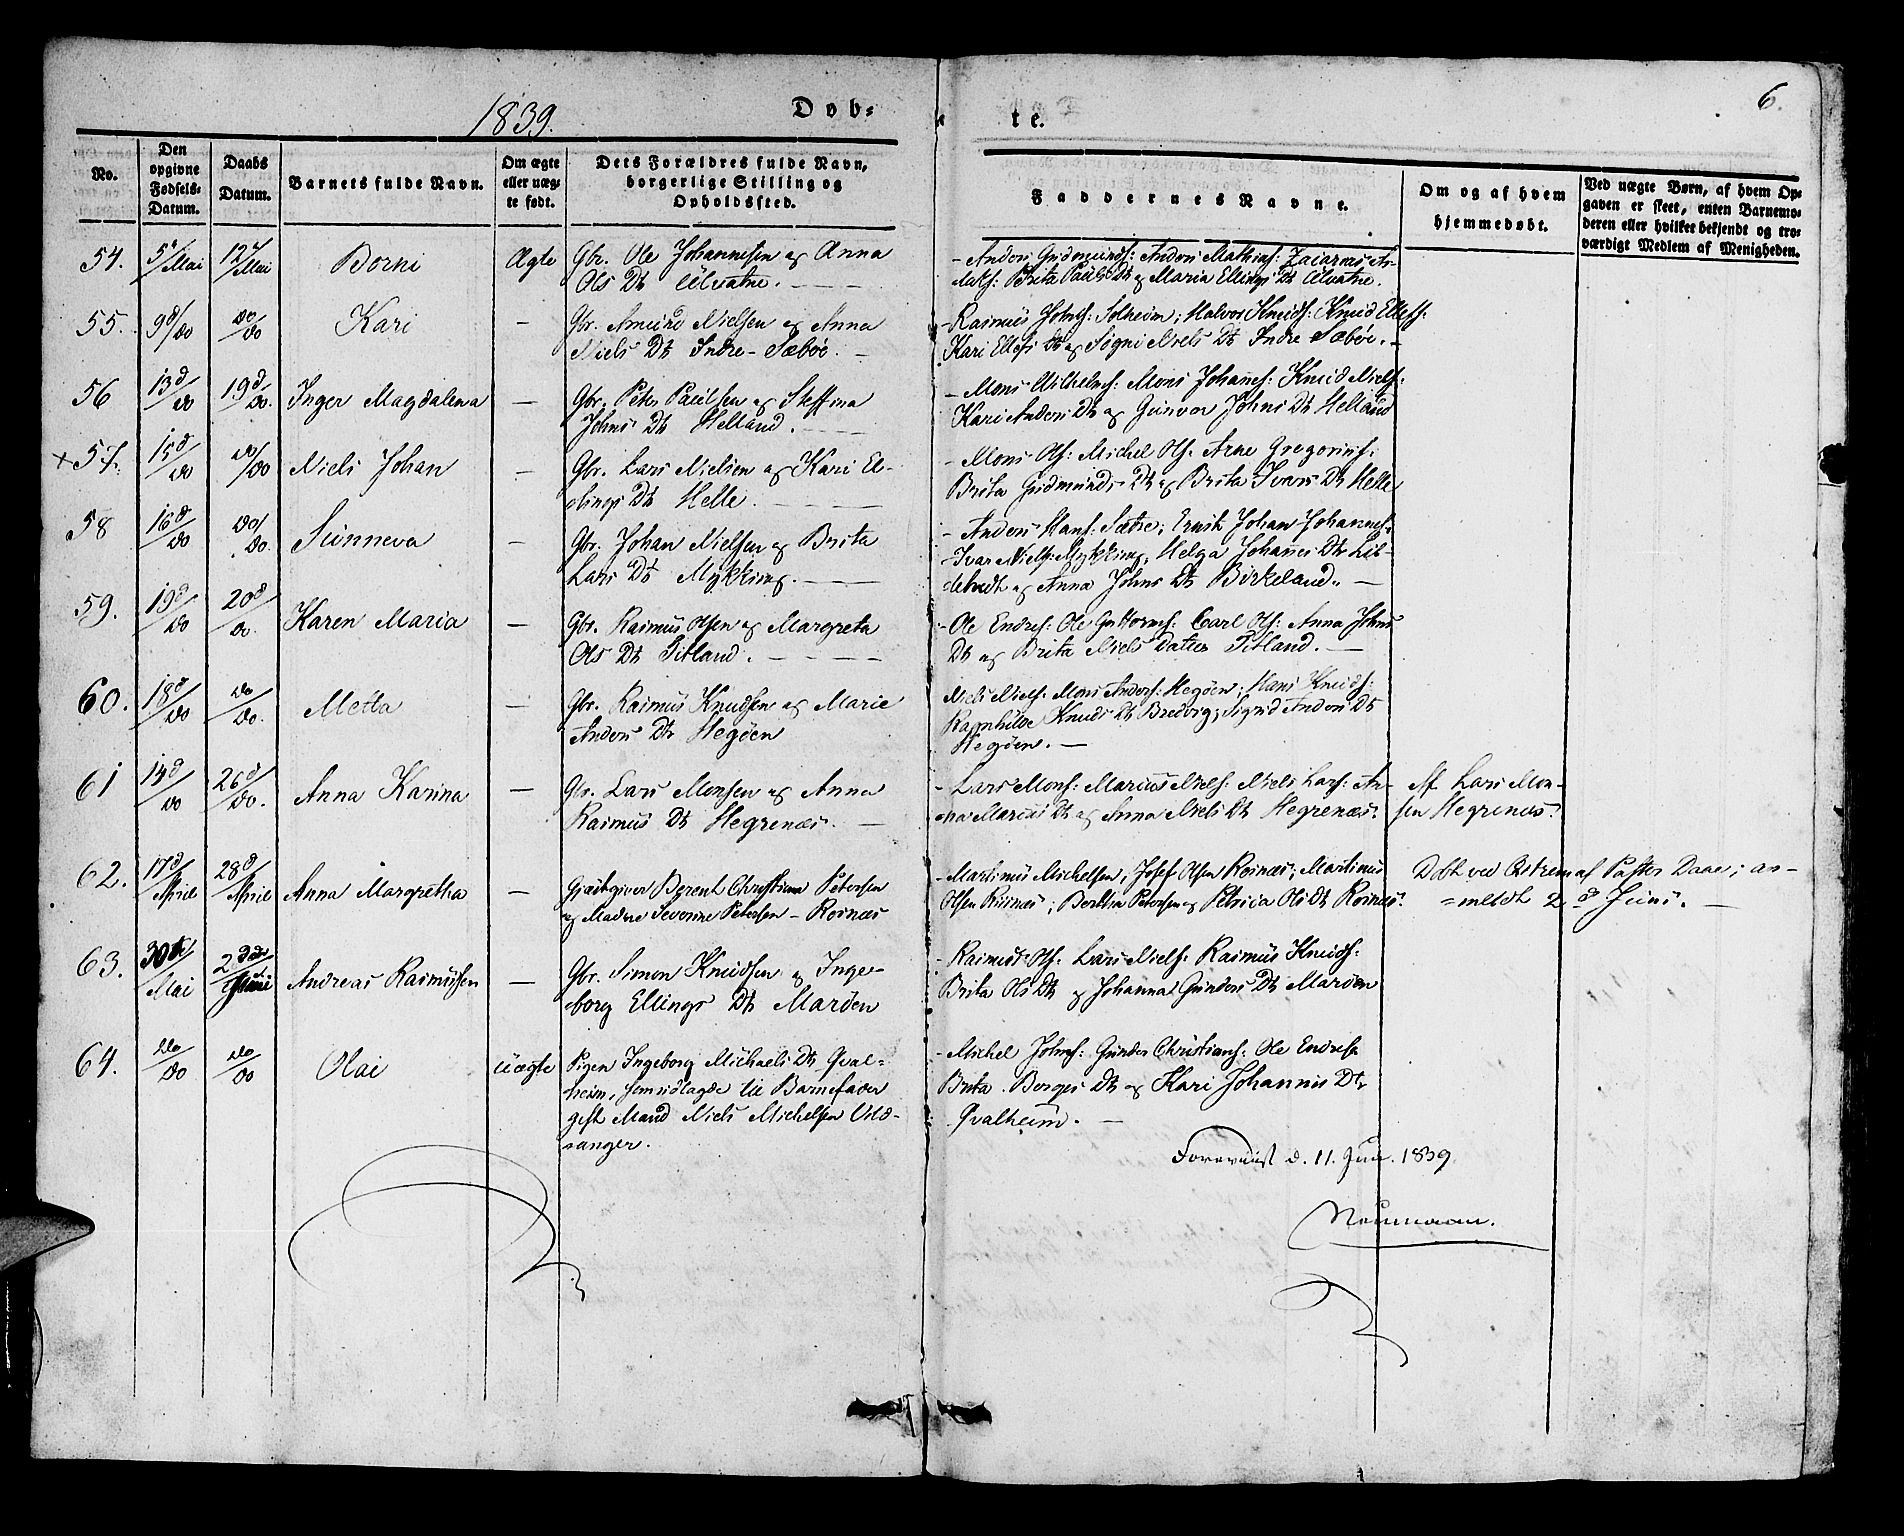 1839.
Døb-
te.
6.
No.
Den opgivne Fødsels-Datum.
Daabs Datum.
Barnets fulde Navn.
Om ægte eller uægte født.
Dets Forældres fulde Navn, borgerlige Stilling og Opholdssted.
Faddernes Navne.
Om og af hvem hjemmedøbt.
Ved uægte Børn, af hvem Opgaven er skeet, enten Barnemoderen eller hvilket bekjendt og troværdigt Medlem af Menigheden.
54. 5t/Mai 12t/Mai Borni Ægte Gbr. Ole Johannesen og Anna
Ols Dt Ulvatne.
- Anders Gudmunds: Anders Mathias:
Brita Pauls Dt og Maria Ellings Dt Ulvatne.
55. 9d/do do/do Kari — Gbr. Amund Nielsen og Anna
Niels Dt Indre-Sæbøe. —
- Rasmus Johns: Solheim; Halvor Knuds: Knud Ellefs:
Kari Ellefs Dt og Søgni Niels Dt Indre Sæbøe. —
56 13d/do 19d/do. Inger Magdalena — Gbr. Peter Paulsen og Steffina
Johns Dt Helland.
- Mons Wilhelms: Mons Johanes: Knud Niels:
Kari Anders Dt og Gunvor Johns Dt Helland
+ 57. 15d/do do/do Niels Johan — Gbr. Lars Nielsen og Kari El-
lings Dt Helle.
- Mons Ols: Michel Ols: Arne Gregorius:
Brita Gudmunds Dt og Brita Ivers Dt Helle
58 16d/do do/do. Sunneva — Gbr. Johan Nielsen og Brita
Lars Dt Mykking.
- Anders Hans: Sætre; Ernst Johan Johannes:
Ivar Niels: Mykking; Helga Johanes Dt Lil-
og Anna Johns Dt Birkeland. —
59. 19d/do 20d/do. Karen Maria — Gbr. Rasmus Olsen og Margreta
Ols Dt Titland.
- Ole Endres: Ole Guttorms: Carl Ols: Anna Johns
Dt og Brita Niels Datter Titland. —
60. 18d/do do/do. Metta — Gbr. Rasmus Knudsen og Marie
Anders Dtr Hegøen
Niels Niels: Mons Anders: Hegøen; Hans Knuds:
Ragnhilde Knuds Dt Bredvig; Sigrid Anders Dt
Hegøen. —
61 14d/do 26d/do. Anna Karina — Gbr. Lars Monsen og Anna
Rasmus Dt Hegrenæs. —
- Lars Mons: Marius Niels: Niels Lars: An-
na Marius Dt og Anna Niels Dt Hegrenæs.
Af Lars Mon-
sen Hegrenæs.
62. 17d/April 28d/April Anna Margretha — Gjæstgiver Berent Christian Petersen
og Madme Severine Petersen - Rosnæs
- Martinus Michelsen; Josef Olsen Rosnæs; Martinus
Olsen Rosnæs; Berthia Petersen og Petricia Ols Dt Rosnæs.
Døbt ved Østrem af Pastor Daae; an-
=meldt 2d Juni. —
63. 30te/Mai 2den/Juni Andreas Rasmussen — Gbr. Simon Knudsen og Inge-
borg Ellings Dt Marøen
- Rasmus Ols: Lars Niels: Rasmus Knuds:
Brita Ols Dt og Johanna Gunders Dt Marøen
64. do/do do/do Olai Uægte Pigen Ingeborg Michaels Dt Qval-
heim, som udlagde til Barnefader
gift Mand Niels Michelsen Uld-
sanger.
- Michel Johns: Gunder Christians: Ole Endres:
Brita Børges Dt og Kari Johannis Dtr
Qvalheim. —
Foreviist d. 11. Juni 1839
Neumann.